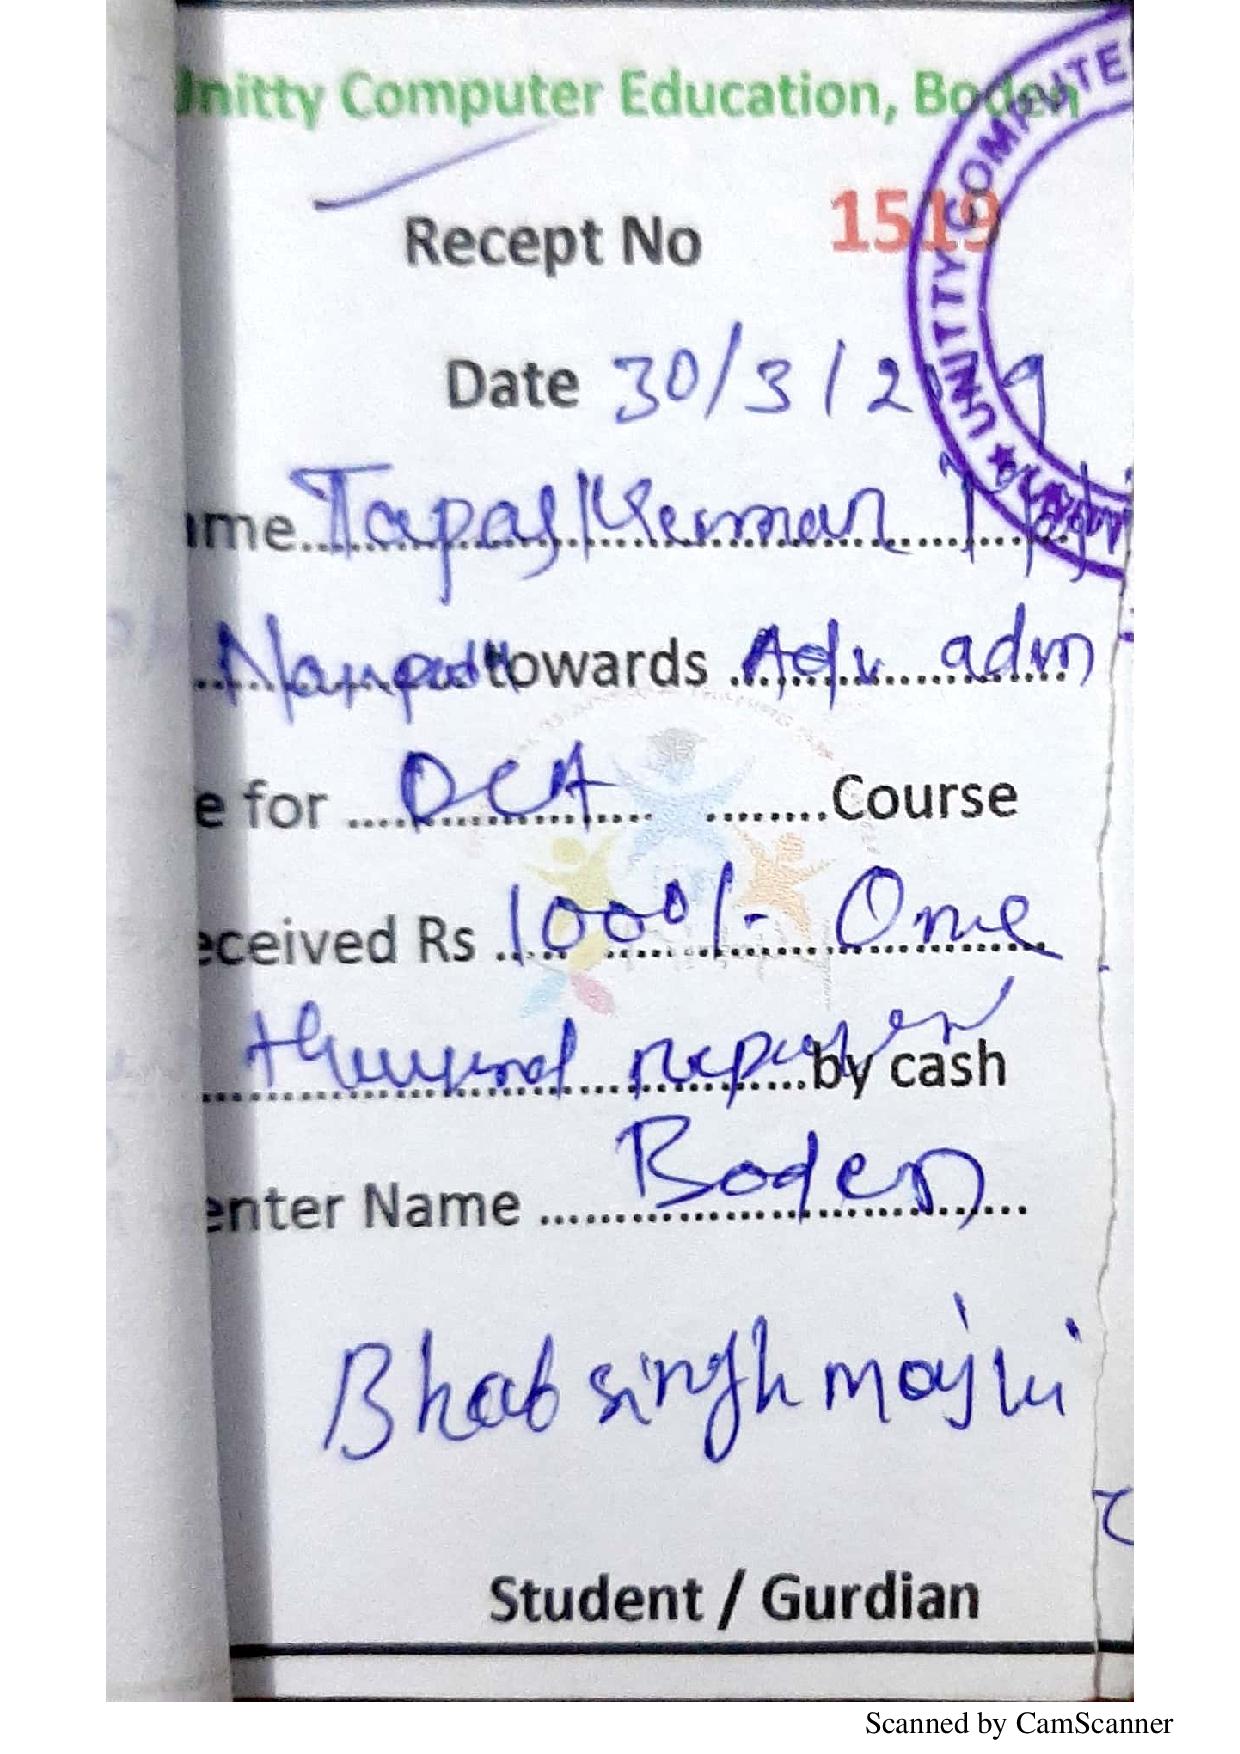 Unitty Computer Education, Boden
Recept No 1519
Date 30/3/219
ame Tapas Kumar
towards Adv. adm
e for DCA Course
eceived Rs 1000/- One
by cash
enter Name Boden
Bhab singh majhi
Student / Gurdian
UNITTY COMPUTE
Scanned by CamScanner